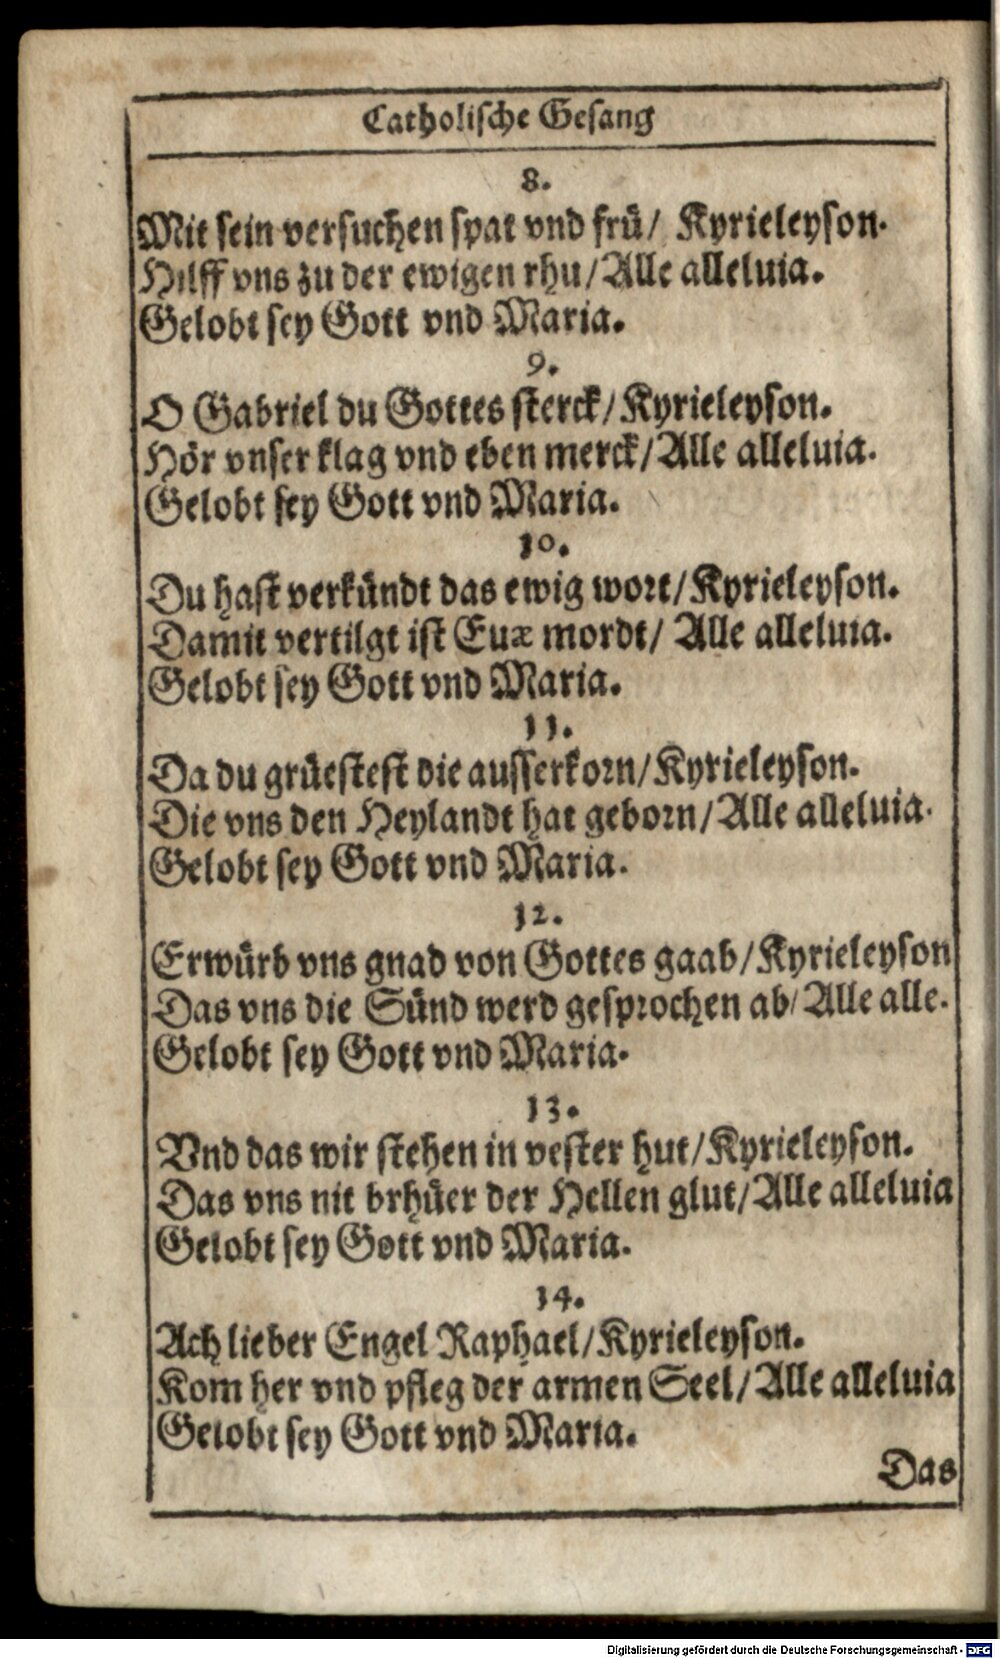 Catholische Gesang
8.
Mit sein versuchen spat vnd frü/ Kyrieleyson.
Hilff vns zu der ewigen rhu/Alle alleluia.
Gelobt sey Gott vnd Maria.
9.
O Gabriel du Gottes sterck/Kyrieleyson.
Hör vnser klag vnd eben merck/Alle alleluia.
Gelobt sey Gott vnd Maria.
10.
Du hast verkündt das ewig wort/Kyrieleyson.
Damit vertilgt ist Euæ mordt/ Alle alleluia.
Gelobt sey Gott vnd Maria.
11.
Da du grüestest die ausserkorn/Kyrieleyson.
Die vns den Heylandt hat geborn/Alle alleluia.
Gelobt sey Gott vnd Maria.
12.
Erwürb vns gnad von Gottes gaab/Kyrieleyson
Das vns die Sünd werd gesprochen ab/Alle alle.
Gelobt sey Gott vnd Maria.
13.
Vnd das wir stehen in vester hut/Kyrieleyson.
Das vns nit brhüer der Hellen glut/Alle alleluia
Gelobt sey Gott vnd Maria.
14.
Ach lieber Engel Raphael/Kyrieleyson.
Kom her vnd pfleg der armen Seel/Alle alleluia
Gelobt sey Gott vnd Maria.
Das
Digitalisierung gefördert durch die Deutsche Forschungsgemeinschaft - DFG